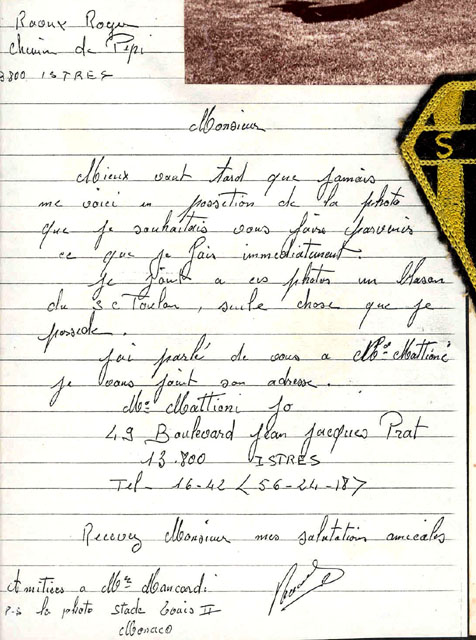 Raoux Roger
chemin de Pipi
13800 ISTRES
S
Monsieur
Mieux vaut tard que jamais
me voici en possetion de la photo
que je souhaitais vous faire parvenir
ce que je fais immediatement.
je joint a ces photos un blason
du S C Toulon, seule chose que je
possede.
j'ai parlé de vous a Mr Mattioni
je vous joint son adresse.
Mr Mattioni Jo
49 Boulevard Jean Jacques Prat
13.800 ISTRES
Tel - 16-42 < 56-24-18 >
Recevez Monsieur mes salutations amicales
Amitiées a Mr Mancardi
P-S la photo stade Louis II
Monaco